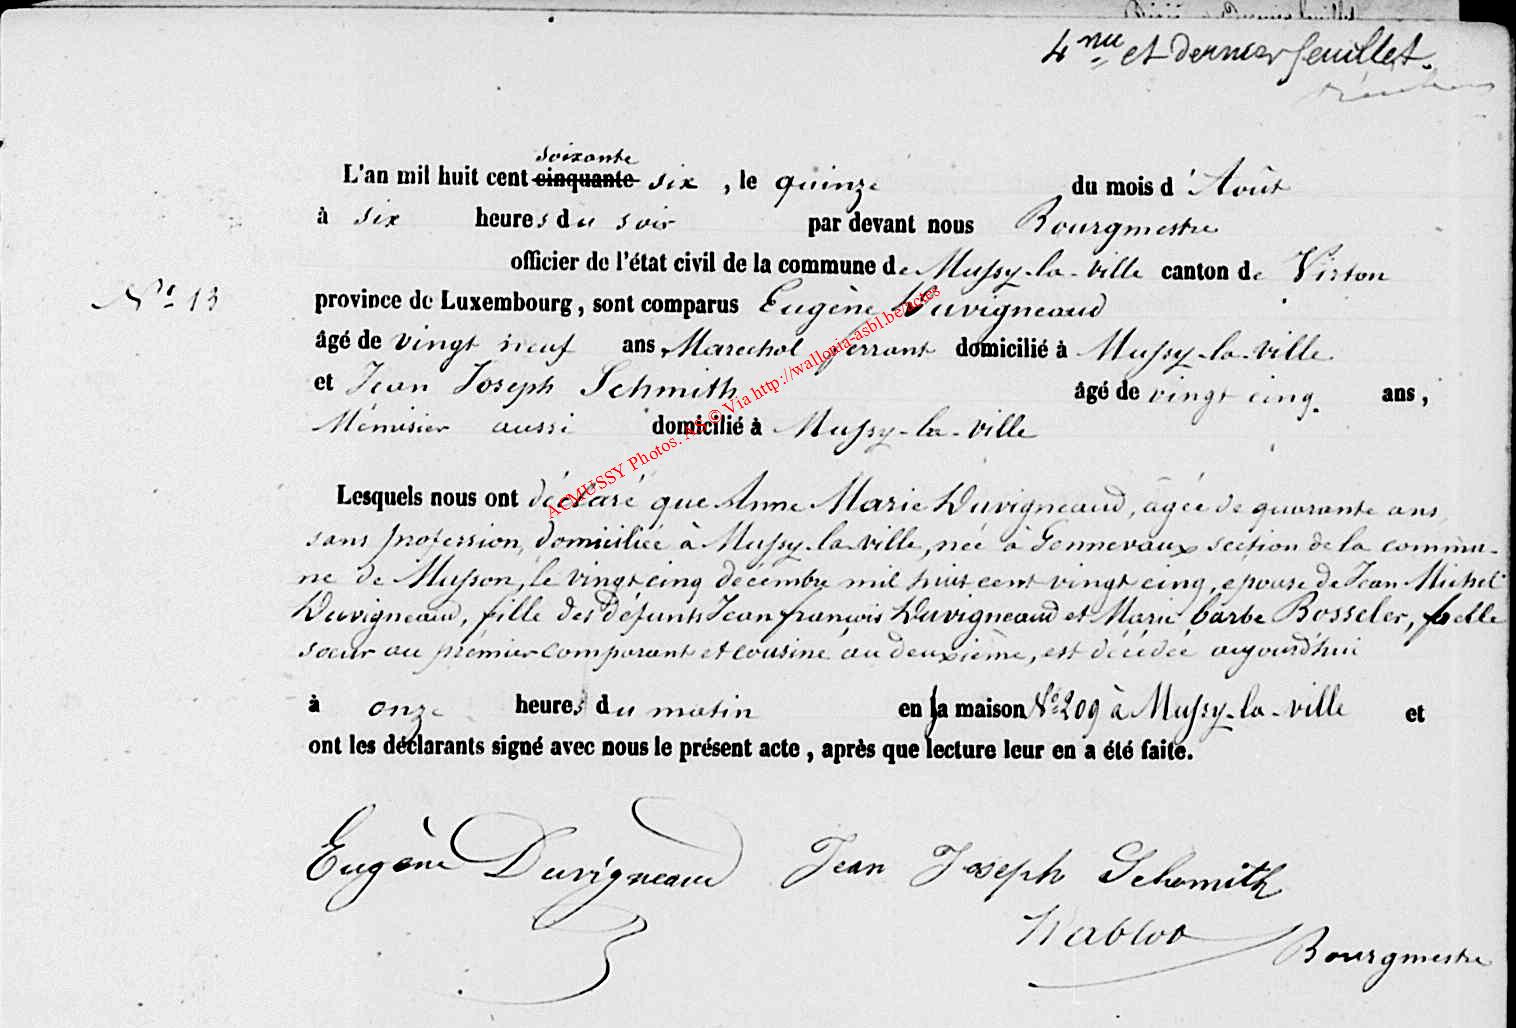 4me et dernier feuillet.
L'an mil huit cent cinquante soixante six, le quinze du mois d'Août
à six heures du soir par devant nous Bourgmestre
officier de l'état civil de la commune de Mussy-la-ville canton de Virton
N° 13
province de Luxembourg, sont comparus Eugène Duvigneaud
âgé de vingt neuf ans, Marechal ferrant domicilié à Mussy-la-ville
et Jean Joseph Schmith âgé de vingt cinq ans,
Ménuisier aussi domicilié à Mussy-la-ville
Lesquels nous ont déclaré que Anne Marie Duvigneaud, âgée de quarante ans,
sans profession, domiciliée à Mussy-la-ville, née à Gennevaux section de la commu-
ne de Musson, le vingt cinq décembre mil huit cent vingt cinq, épouse de Jean Michel
Duvigneaud, fille des défunts Jean françois Duvigneaud et Marie barbe Bosseler, belle
sœur au prémier comparant et cousine au deuxième, est décédée aujourd'hui
à onze heures du matin en la maison N° 209 à Mussy-la-ville et
ont les déclarants signé avec nous le présent acte, après que lecture leur en a été faite.
Eugène Duvigneaud Jean Joseph Schmith
Bourgmestre
ACMUSSY Photos. AS © Via http://wallonia-asbl.be/actes